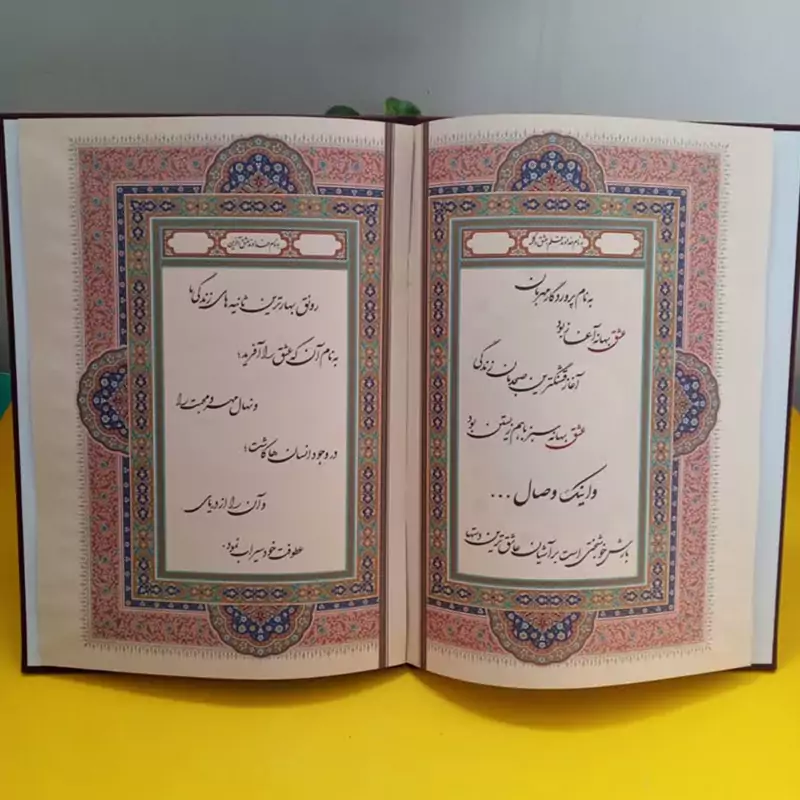 به نام خداوند عشق
به نام پروردگار مهربان
عشق بهانه آغاز بود
آغاز قشنگترین صبحدمان زندگی
عشق بهانه سبز با هم زیستن بود
و اینک وصال ...
بارش خوشبختی است بر آشیان عاشق ترین دستها
به نام خداوند عشق آفرین
رونق بهارترین ثانیه های زندگی ها
به نام آن که عشق را آفرید؛
و نهال مهر و محبت را
در وجود انسان ها کاشت؛
و آن را از دریای
عطوفت خود سیراب نمود.